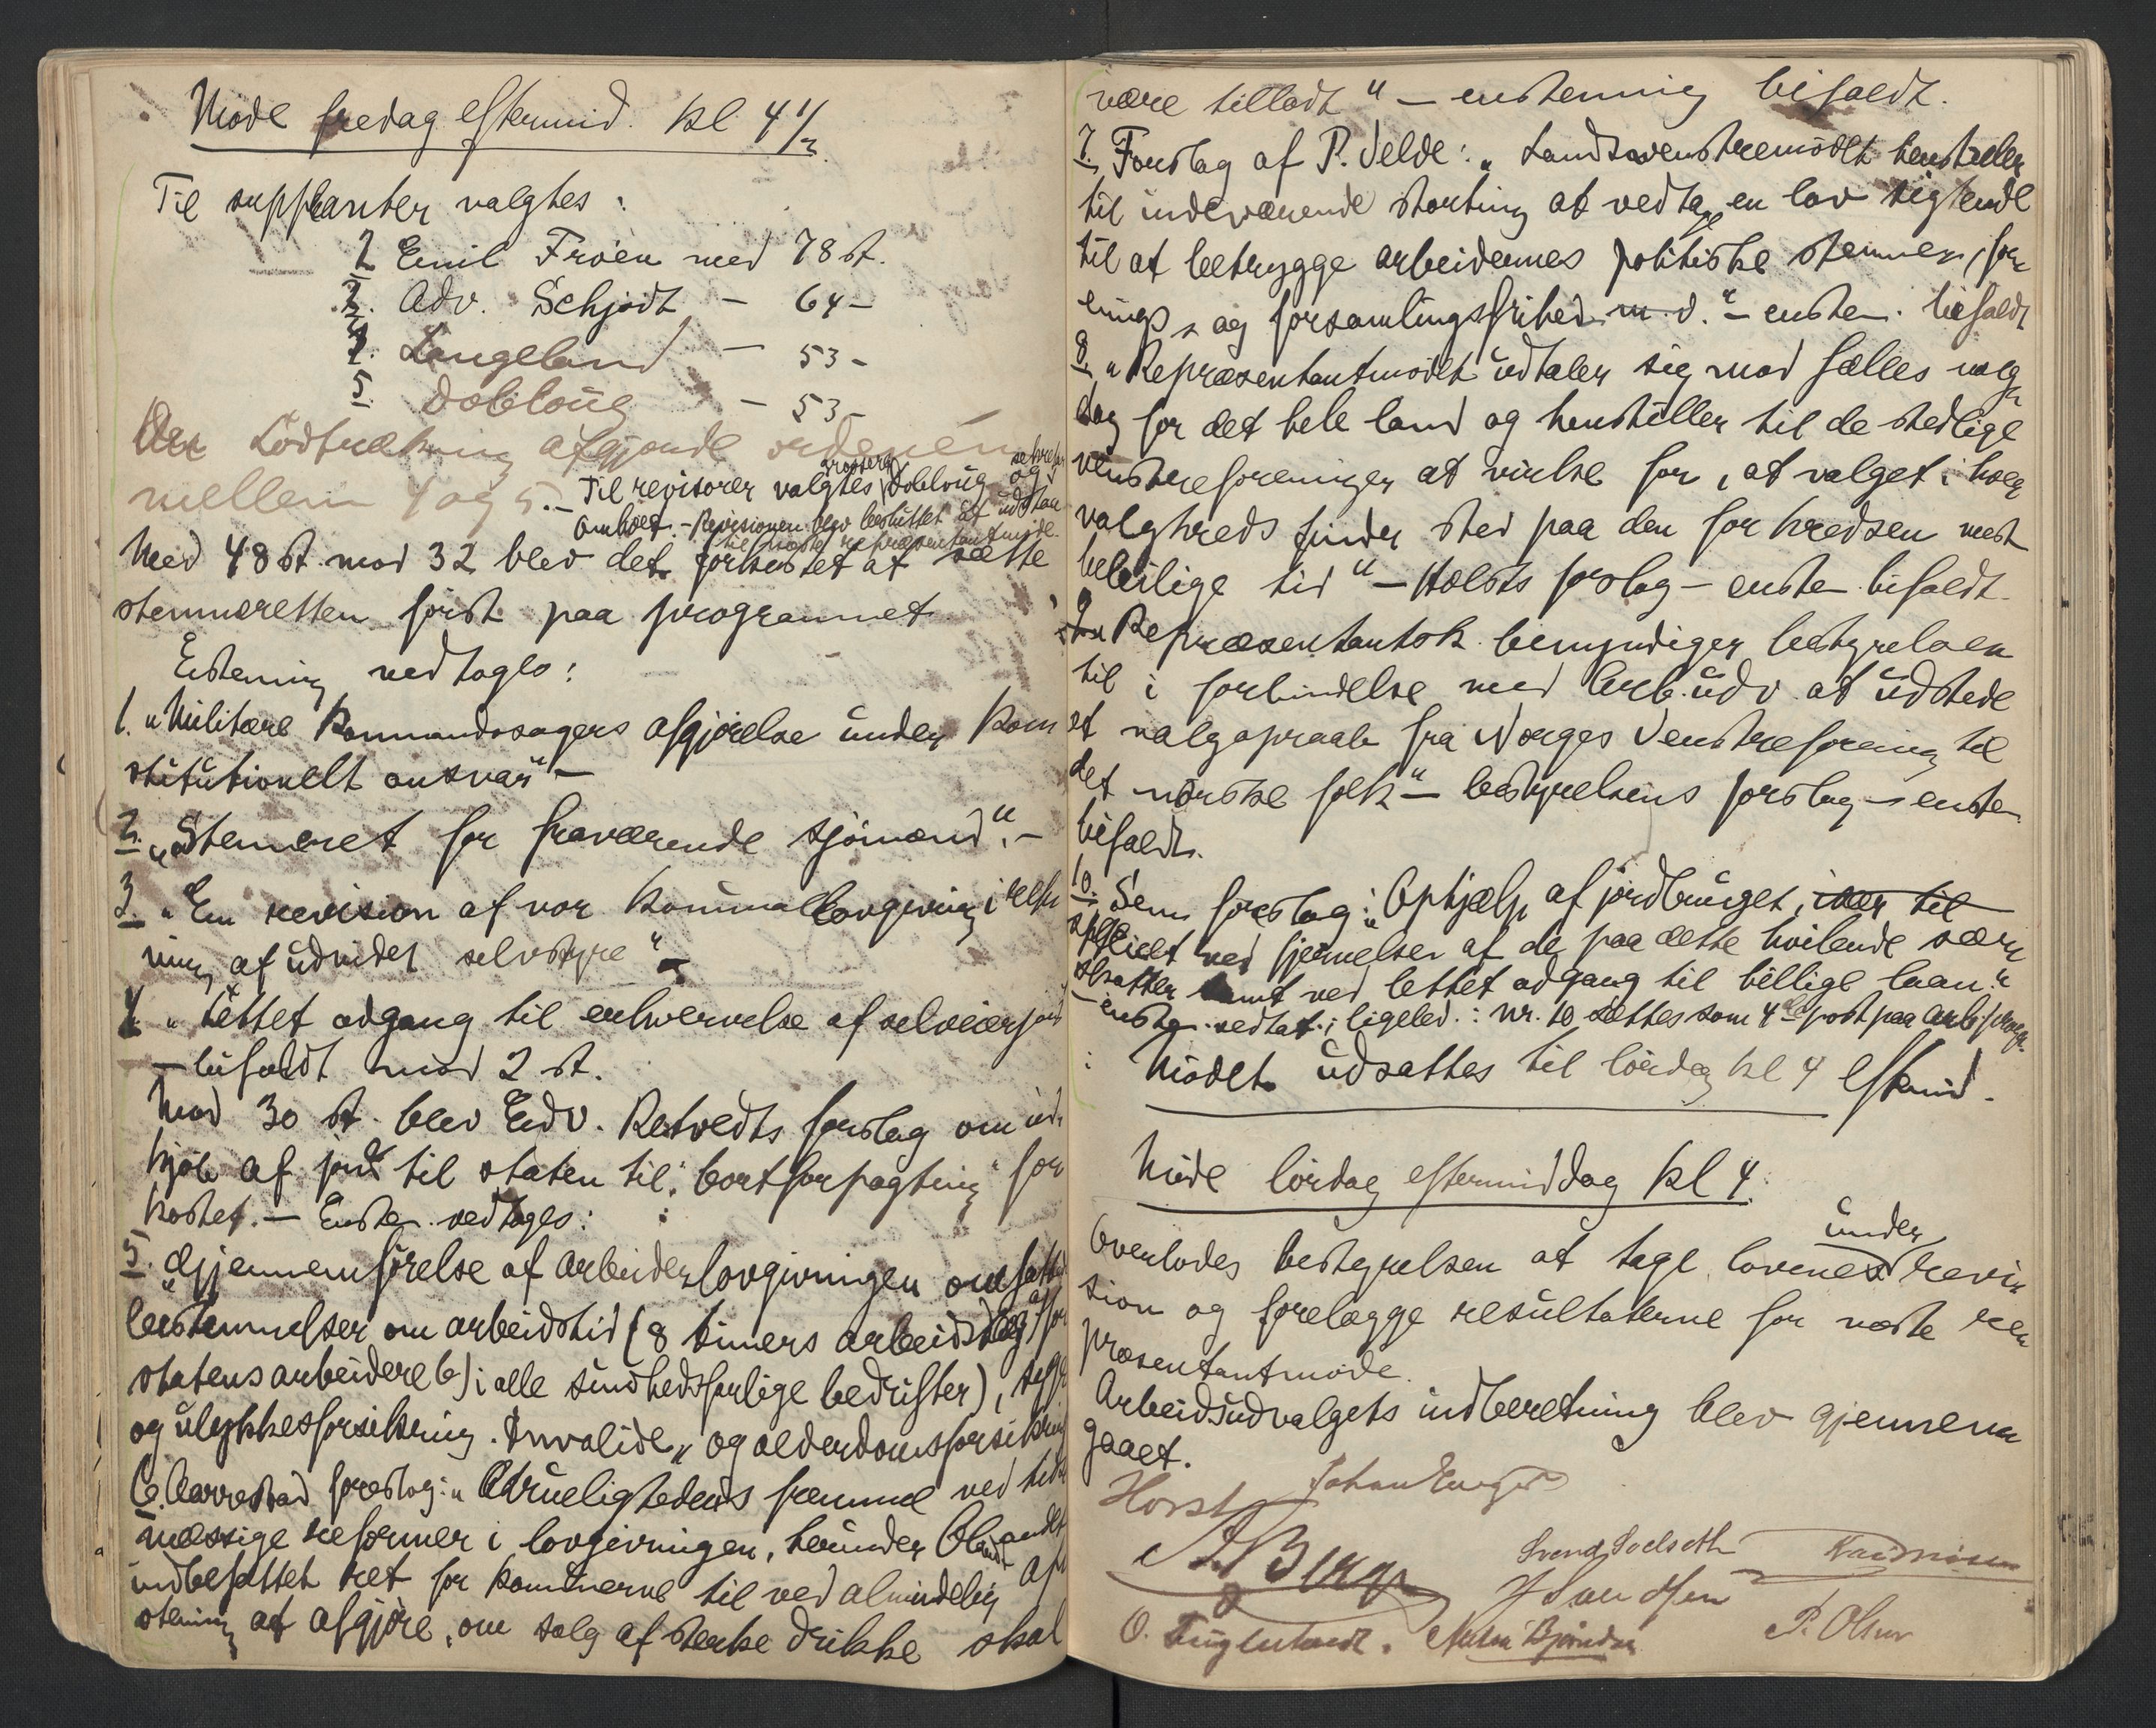 Møde fredag eftermid. kl 4 1/2.
Til suppleanter valgtes:
2. Emil Fröen med 78 st.
3. Adv. Schjødt — 64 —
4. Langeland — 53 —
5. Dobloug — 53 —
Lodtrækning afgjorde ordenen
mellem 4 og 5. — Til revisorer valgtes grosserer Dobloug og
Omholt. — Revisionen blev besluttet at udstaa
til næste repræsentantmøde.
Med 48 st. mod 32 blev det forkastet at sætte
stemmeretten først paa programmet.
Enstemmig vedtoges:
1. „Militære kommandosagers afgjørelse under kon
stitutionelt ansvar" —
2. „Stemmeret for fraværende sjömænd". —
3. „En revision af vor kommunallovgivning i retn
ning af udvidet selvstyre" —
4. „Lettet adgang til erhvervelse af selveierjord
— bifaldt mod 2 st.
Mod 30 st. blev Edv. Retvedts forslag om ind
kjøb af jord til staten til „bortforpagtning" for
kastet. — Enstem. vedtoges:
5. „Gjennemførelse af arbeiderlovgivningen omfattende
bestemmelser om arbeidstid (8 timers arbeidsdag a) for
statens arbeidere b) i alle sundhedsfarlige bedrifter), syge
og ulykkesforsikring. Invalide- og alderdomsforsikring
6. Aarrestad forslag: „Ædrueligheden's fremme ved tids
mæssige reformer i lovgivningen, herunder blandt andet
indbefattet ret for kommunerne til ved almindelig af
stemning at afgjöre, om salg af stærke drikke skal
være tilladt" — enstemmig bifaldt.
7. Forslag af P. Velde: „Landsvenstremödet henstiller
til indeværende storting at vedtage en lov sigtende
til at betrygge arbeidernes politiske stemme-, for
enings- og forsamlingsfrihed m. v." — enstem. bifaldt
8. „Repræsentantmödet udtaler sig mod fælles valg
dag for det hele land og henstiller til de stedlige
venstreforeninger at virke for, at valget i hver
valgkreds finder sted paa den for kredsen mest
beleilige tid" — Holsts forslag — enstem bifaldt.
9. Repræsentantsk. bemyndiger bestyrelsen
til i forbindelse med Arb.udv. at udstede
et valgopraab fra Norges Venstreforening til
det norske folk" — bestyrelsens forslag — enstem.
bifaldt.
10. Sem forslag: „Ophjælp af jordbruget, især til
specielt ved fjernelser af de paa dette hvilende sær
skatter samt ved lettet adgang til billige laan."
— enstem. vedtat.; ligeled.: nr. 10 sættes som 4de post paa arb.progr.
Mödet udsattes til lördag kl 4 eftermid.
Møde lördag eftermiddag kl 4.
Overlodes bestyrelsen at tage lovene under revi
sion og forelægge resultaterne for næste re
præsentantmøde.
Arbeidsudvalgets indberetning blev gjennem
gaaet.
Horst Johan Enger
A. Berge Svend Soelseth Rasmussen
J. Svendsen
O. Fuglestvedt. P. Olsen